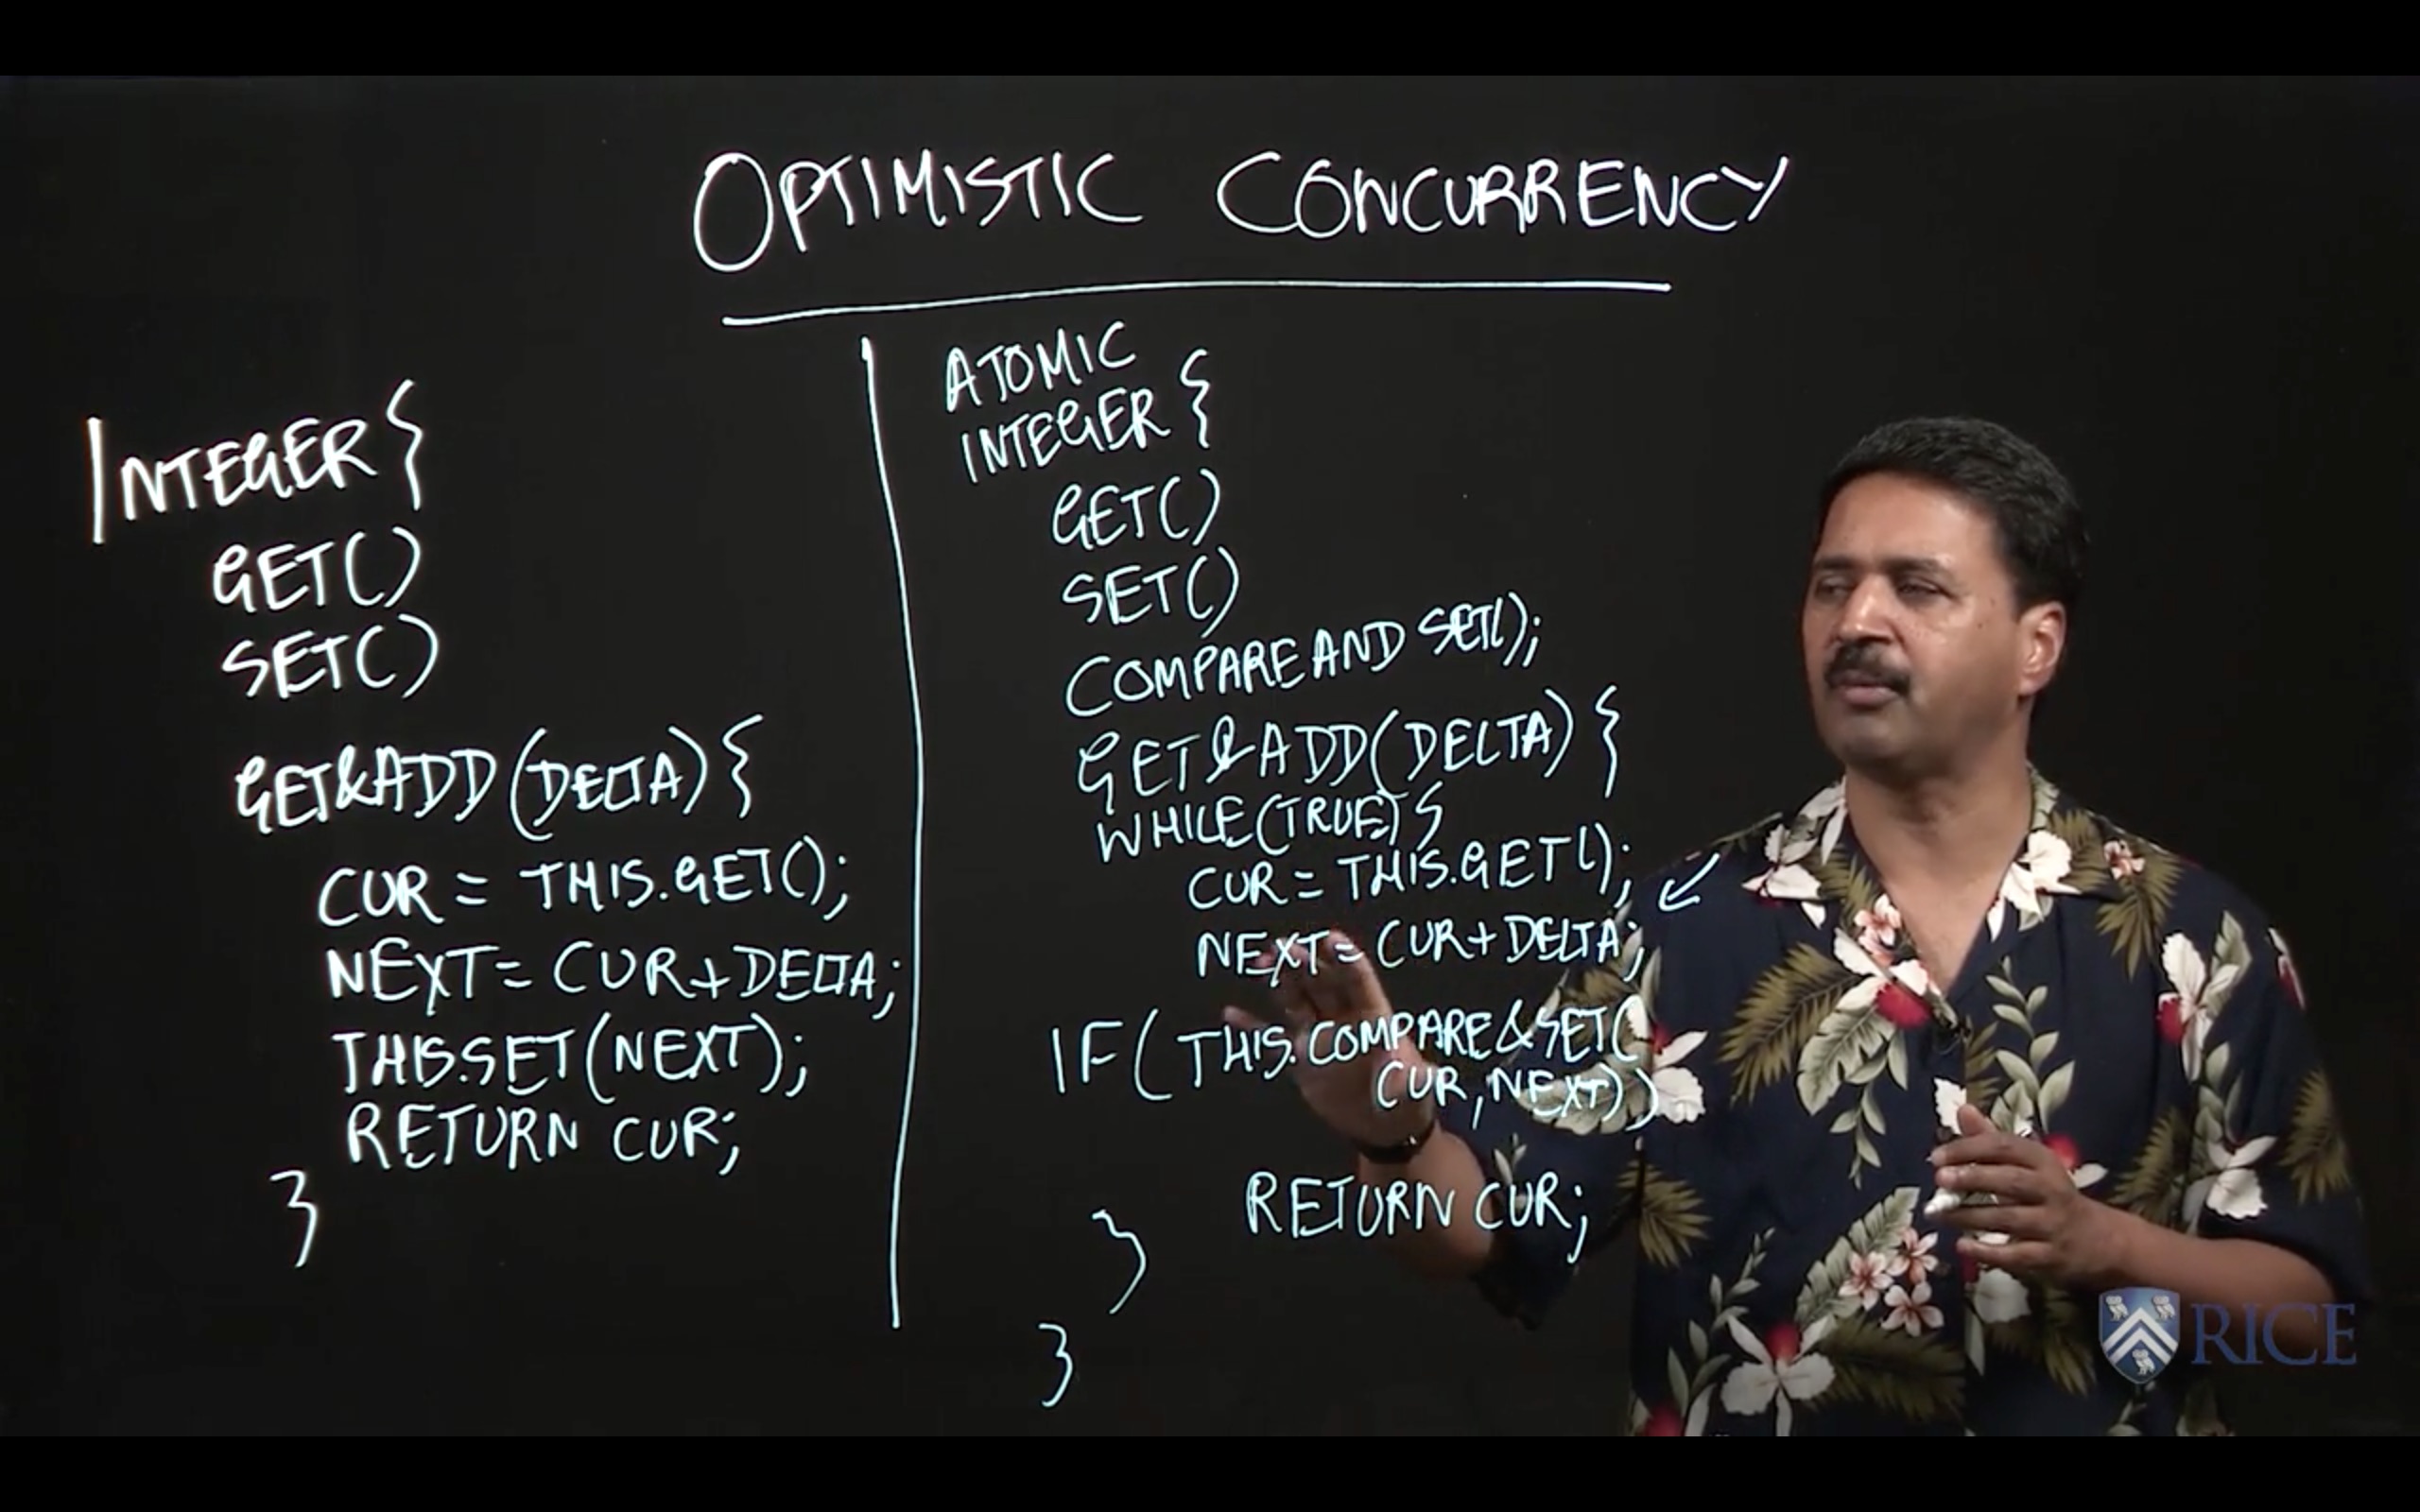 OPTIMISTIC CONCURRENCY
INTEGER {
GET()
SET()
GET&ADD (DELTA) {
CUR = THIS.GET();
NEXT = CUR+DELTA;
THIS.SET(NEXT);
RETURN CUR;
}
ATOMIC
INTEGER {
GET()
SET()
COMPAREAND SET();
GET&ADD(DELTA) {
WHILE(TRUE) {
CUR = THIS.GET();
NEXT = CUR+DELTA;
IF( THIS.COMPARE&SET(
CUR, NEXT))
RETURN CUR;
}
}
RICE